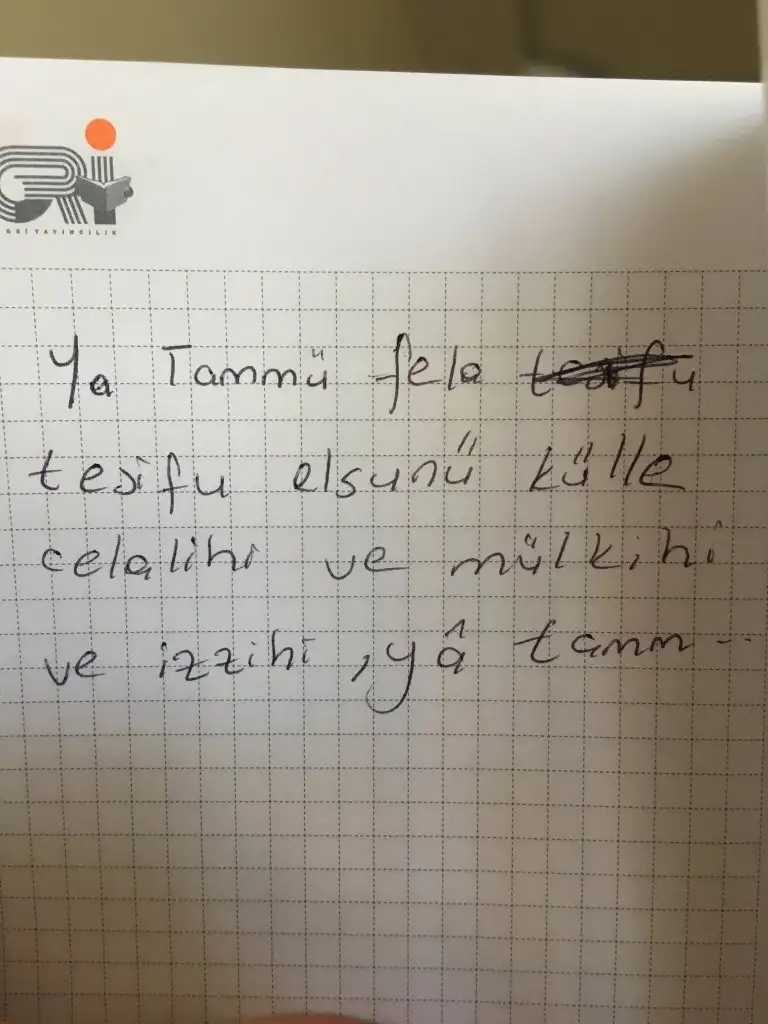 GRİ
GRİ YAYINCILIK
Ya Tammü fela
tesifu elsunü külle
celalihi ve mülkihi
ve izzihi, yâ tamm...